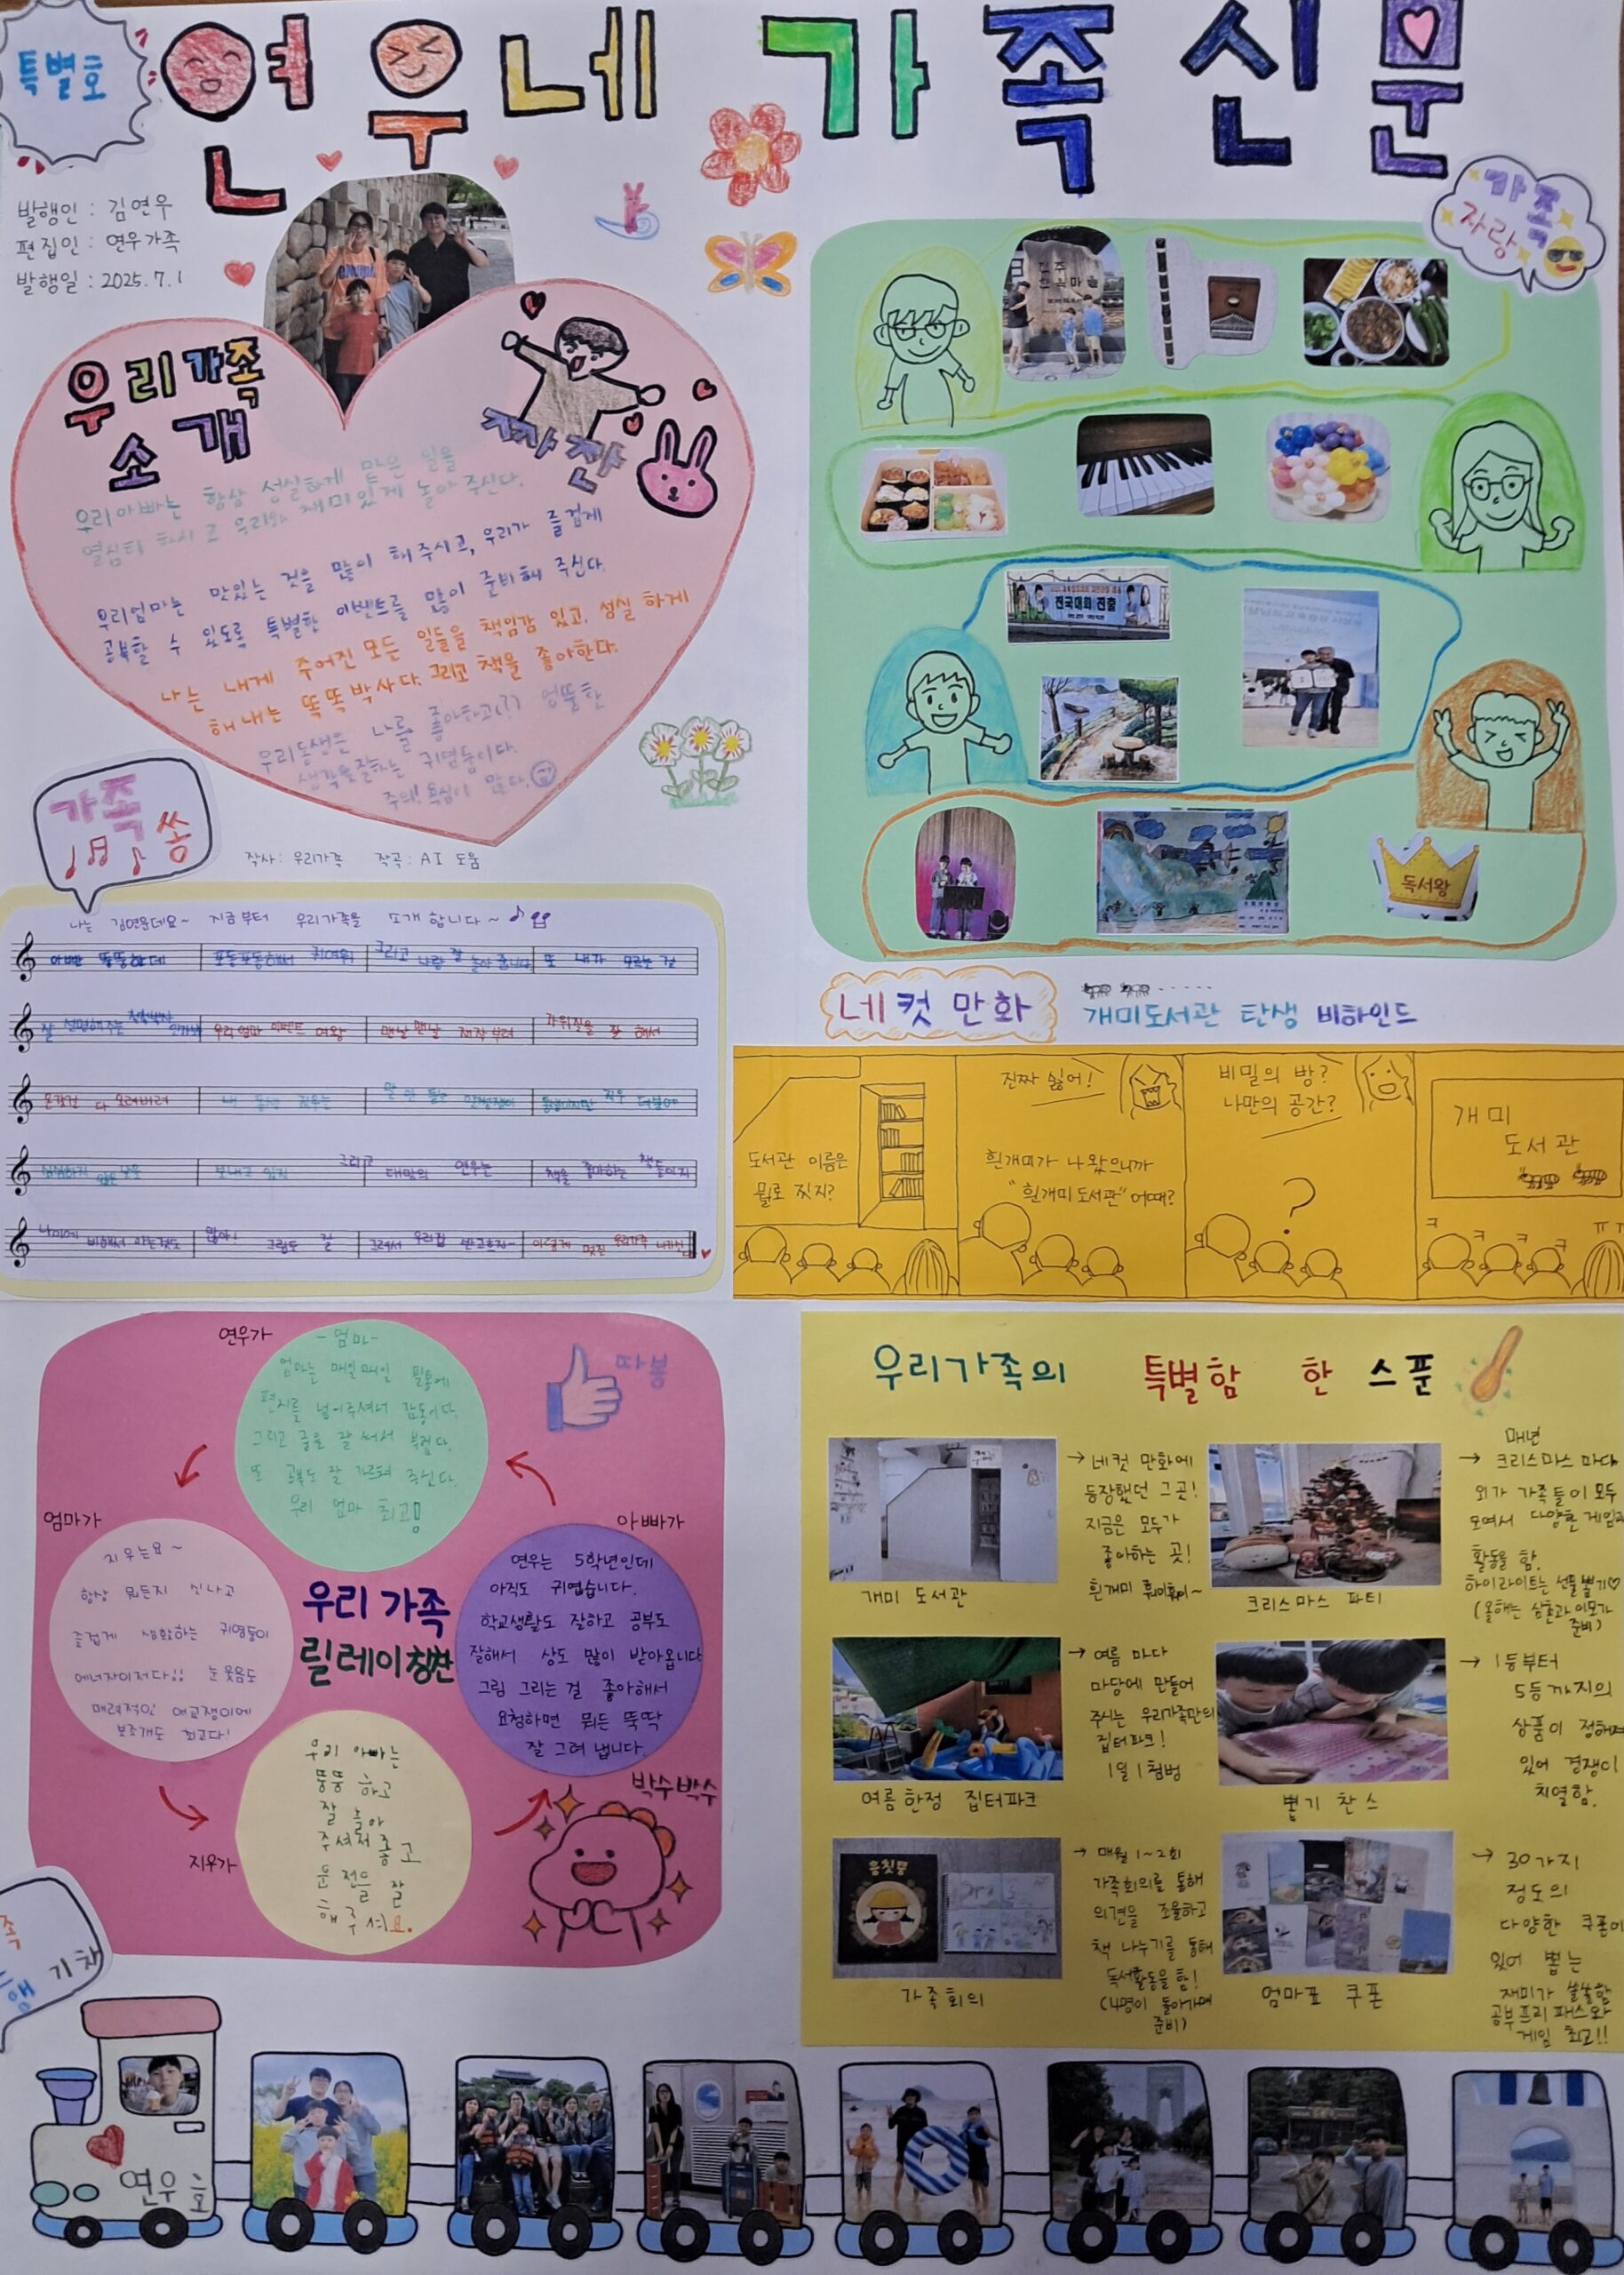 특별호
연우네 가족신문
발행인 : 김연우
편집인 : 연우가족
발행일 : 2025.7.1
우리가족
소개
짜잔
우리아빠는 항상 성실하게 맡은 일을
열심히 하시고 우리와 재미있게 놀아 주신다.
우리엄마는 맛있는 것을 많이 해주시고, 우리가 즐겁게
공부할 수 있도록 특별한 이벤트를 많이 준비해 주신다.
나는 내게 주어진 모든 일들을 책임감 있고, 성실 하게
해 내는 똑똑박사다. 그리고 책을 좋아한다.
우리동생은 나를 좋아하고(?) 엉뚱한
생각을잘하는 귀염둥이다.
주의! 욕심이 많다.
가족
자랑
전주
한옥마을
전국대회 진출
독서왕
가족
쏭
작사: 우리가족 작곡: AI 도움
나는 김연우데요~ 지금부터 우리가족을 소개 합니다~
아빠는 뚱뚱한데 포동포동해서 귀여워 그리고 나랑 잘 놀아 줍니다 또 내가 모르는 걸
잘 설명해주는 우리엄마 이벤트 여왕 맨날맨날 가위질을 잘 해서
온갖걸 다 오려버려 내 동생 지우는 말 안 듣는
심심하지 않은 보내고 있지 그리고 대망의 연우는 책을 좋아하는 책돌이지
나이에 비해서 아는것도 많아! 그림도 잘 그려서 우리집 이렇게 멋진 우리가족
네컷만화
개미도서관 탄생 비하인드
도서관 이름은
뭘로 짓지?
진짜 싫어!
흰개미가 나왔으니까
"흰개미도서관"어때?
비밀의 방?
나만의 공간?
?
개미
도서관
ㅋ ㅋ ㅋ ㅋ ㅠㅠ
연우가
-엄마-
엄마는 매일매일 필통에
편지를 넣어주셔서 감동이다.
그리고 글을 잘 써서 부럽다.
또 공부도 잘 가르쳐 주신다.
우리 엄마 최고!
따봉
엄마가
지우는요~
항상 뭐든지 신나고
즐겁게 생활하는 귀염둥이
에너자이저다!! 눈웃음도
매력적인 애교쟁이에
보조개도 최고다!
우리 가족
릴레이칭찬
아빠가
연우는 5학년인데
아직도 귀엽습니다.
학교생활도 잘하고 공부도
잘해서 상도 많이 받아옵니다
그림 그리는 걸 좋아해서
요청하면 뭐든 뚝딱
잘 그려 냅니다.
지우가
우리 아빠는
뚱뚱 하고
잘 놀아
주셔서 좋고
운전을 잘
해주셔요.
박수박수
우리가족의 특별함 한 스푼
개미 도서관
→네컷 만화에
등장했던 그곳!
지금은 모두가
좋아하는 곳!
흰개미 훠이훠이~
크리스마스 파티
매년
→ 크리스마스 마다
외가 가족들이 모두
모여서 다양한 게임과
활동을 함.
하이라이트는 선물뽑기♡
(올해는 삼촌과 이모가
준비)
여름한정 집터파크
→여름 마다
마당에 만들어
주시는 우리가족만의
집터파크!
1일 1첨벙
뽑기 찬스
→ 1등부터
5등까지의
상품이 정해져
있어 경쟁이
치열함.
가족회의
→ 매월 1~2회
가족회의를 통해
의견을 조율하고
책 나누기를 통해
독서활동을 함!
(4명이 돌아가며
준비)
엄마표 쿠폰
→ 30가지
정도의
다양한 쿠폰이
있어 뽑는
재미가 쏠쏠함
공부프리패스와
게임 최고!!
기차
연우호